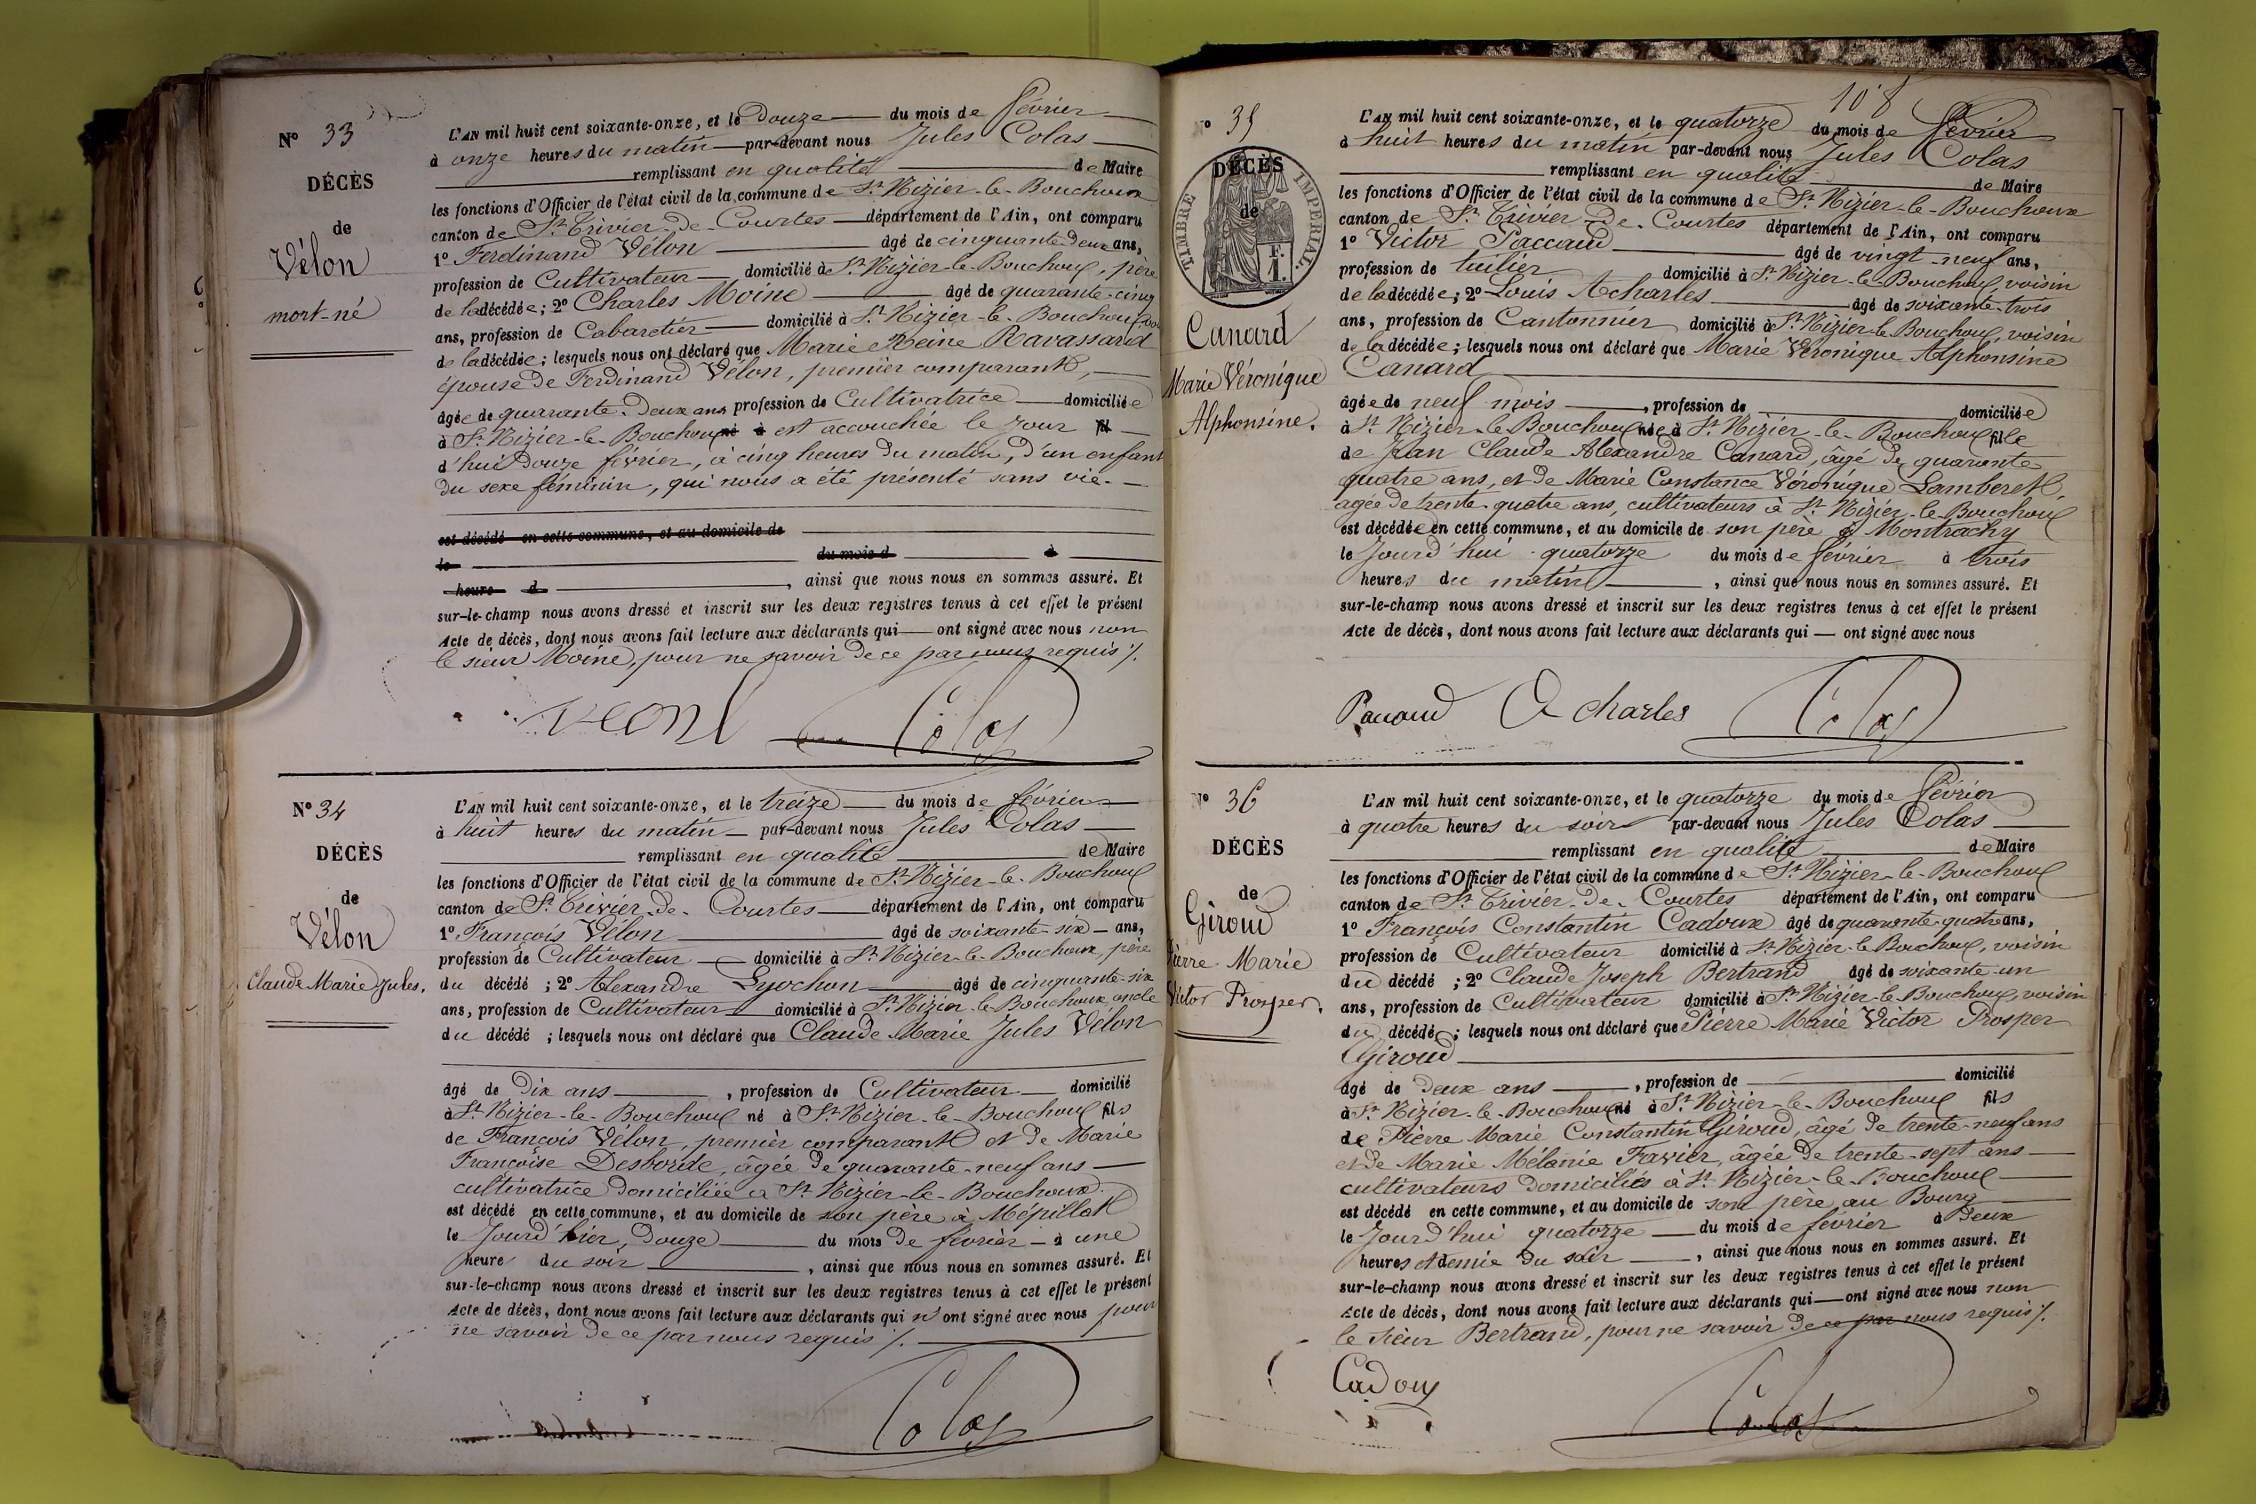 N° 33
DÉCÈS
de
Vélon
mort-né
L'AN mil huit cent soixante-onze, et le Douze du mois de février
à onze heures du matin par-devant nous Jules Colas
remplissant en qualité de Maire
les fonctions d'Officier de l'état civil de la commune de St Nizier-le-Bouchoux
canton de St Trivier-de-Courtes département de l'Ain, ont comparu
1° Ferdinand Vélon âgé de cinquante-deux ans,
profession de Cultivateur domicilié à St Nizier-le-Bouchoux, père
de la décédée; 2° Charles Moine âgé de quarante-cinq
ans, profession de Cabaretier domicilié à St Nizier-le-Bouchoux
de la décédée; lesquels nous ont déclaré que Marie Reine Ravassard
épouse de Ferdinand Vélon, premier comparant,
âgée de quarante-deux ans profession de Cultivatrice domiciliée
à St Nizier-le-Bouchoux né à est accouchée le jour fil
d'hui Douze février, à cinq heures du matin, d'un enfant
du sexe féminin, qui nous a été présenté sans vie.
est décédé en cette commune, et au domicile de
le du mois d à
heure d , ainsi que nous nous en sommes assuré. Et
sur-le-champ nous avons dressé et inscrit sur les deux registres tenus à cet effet le présent
Acte de décès, dont nous avons fait lecture aux déclarants qui ont signé avec nous non
le sieur Moine, pour ne savoir de ce par nous requis ./.
Colas
N° 34
DÉCÈS
de
Vélon
Claude Marie Jules.
L'AN mil huit cent soixante-onze, et le treize du mois de février
à huit heures du matin par-devant nous Jules Colas
remplissant en qualité de Maire
les fonctions d'Officier de l'état civil de la commune de St Nizier-le-Bouchoux
canton de St Trivier-de-Courtes département de l'Ain, ont comparu
1° François Vélon âgé de soixante-six ans,
profession de Cultivateur domicilié à St Nizier-le-Bouchoux, père
du décédé ; 2° Alexandre Lyochon âgé de cinquante-six
ans, profession de Cultivateur domicilié à St Nizier-le-Bouchoux, oncle
du décédé ; lesquels nous ont déclaré que Claude Marie Jules Vélon
âgé de dix ans , profession de Cultivateur domicilié
à St Nizier-le-Bouchoux né à St Nizier-le-Bouchoux fils
de François Vélon, premier comparant et de Marie
Françoise Desborde, âgée de quarante-neuf ans
cultivatrice domiciliée à St Nizier-le-Bouchoux.
est décédé en cette commune, et au domicile de son père à Mépillat
le Jourd'hier, douze du mois de février à une
heure du soir , ainsi que nous nous en sommes assuré. Et
sur-le-champ nous avons dressé et inscrit sur les deux registres tenus à cet effet le présent
Acte de décès, dont nous avons fait lecture aux déclarants qui n'ont signé avec nous pour
ne savoir de ce par nous requis ./.
Colas
108
N° 35
DÉCÈS
de
TIMBRE IMPÉRIAL.
F.
1.
Canard
Marie Véronique
Alphonsine.
L'AN mil huit cent soixante-onze, et le quatorze du mois de février
à huit heures du matin par-devant nous Jules Colas
remplissant en qualité de Maire
les fonctions d'Officier de l'état civil de la commune de St Nizier-le-Bouchoux
canton de St Trivier-de-Courtes département de l'Ain, ont comparu
1° Victor Paccaud âgé de vingt-neuf ans,
profession de tuilier domicilié à St Nizier-le-Bouchoux, voisin
de la décédée; 2° Louis Acharles âgé de soixante-trois
ans, profession de Cantonnier domicilié à St Nizier-le-Bouchoux, voisin
de la décédée; lesquels nous ont déclaré que Marie Véronique Alphonsine
Canard
âgée de neuf mois , profession de domiciliée
à St Nizier-le-Bouchoux née à St Nizier-le-Bouchoux file
de Jean Claude Alexandre Canard, âgé de quarante
quatre ans, et de Marie Constance Véronique Lamberet,
agée de trente-quatre ans, cultivateurs à St Nizier-le-Bouchoux
est décédée en cette commune, et au domicile de son père à Montrachy
le Jourd'hui quatorze du mois de février à trois
heures du matin , ainsi que nous nous en sommes assuré. Et
sur-le-champ nous avons dressé et inscrit sur les deux registres tenus à cet effet le présent
Acte de décès, dont nous avons fait lecture aux déclarants qui ont signé avec nous
Paccaud Acharles Colas
N° 36
DÉCÈS
de
Giroud
Pierre Marie
Victor Prosper.
L'AN mil huit cent soixante-onze, et le quatorze du mois de février
à quatre heures du soir par-devant nous Jules Colas
remplissant en qualité de Maire
les fonctions d'Officier de l'état civil de la commune de St Nizier-le-Bouchoux
canton de St Trivier-de-Courtes département de l'Ain, ont comparu
1° François Constantin Cadoux âgé de quarante-quatre ans,
profession de Cultivateur domicilié à St Nizier-le-Bouchoux, voisin
du décédé ; 2° Claude Joseph Bertrand âgé de soixante-un
ans, profession de Cultivateur domicilié à St Nizier-le-Bouchoux, voisin
du décédé ; lesquels nous ont déclaré que Pierre Marie Victor Prosper
Giroud
âgé de Deux ans , profession de domicilié
à St Nizier-le-Bouchoux né à St Nizier-le-Bouchoux fils
de Pierre Marie Constantin Giroud, âgé de trente-neuf ans
et de Marie Mélanie Favier, agée de trente-sept ans
cultivateurs domiciliés à St Nizier-le-Bouchoux
est décédé en cette commune, et au domicile de son père, au Bourg
le Jourd'hui quatorze du mois de février à Deux
heures et demie du soir , ainsi que nous nous en sommes assuré. Et
sur-le-champ nous avons dressé et inscrit sur les deux registres tenus à cet effet le présent
Acte de décès, dont nous avons fait lecture aux déclarants qui ont signé avec nous non
le sieur Bertrand, pour ne savoir de ce par nous requis ./.
Cadoux
Colas